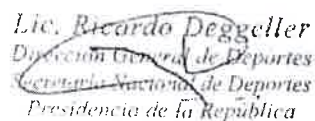 Lic. Ricardo Deggeller
Dirección General de Deportes
Secretaría Nacional de Deportes
Presidencia de la República